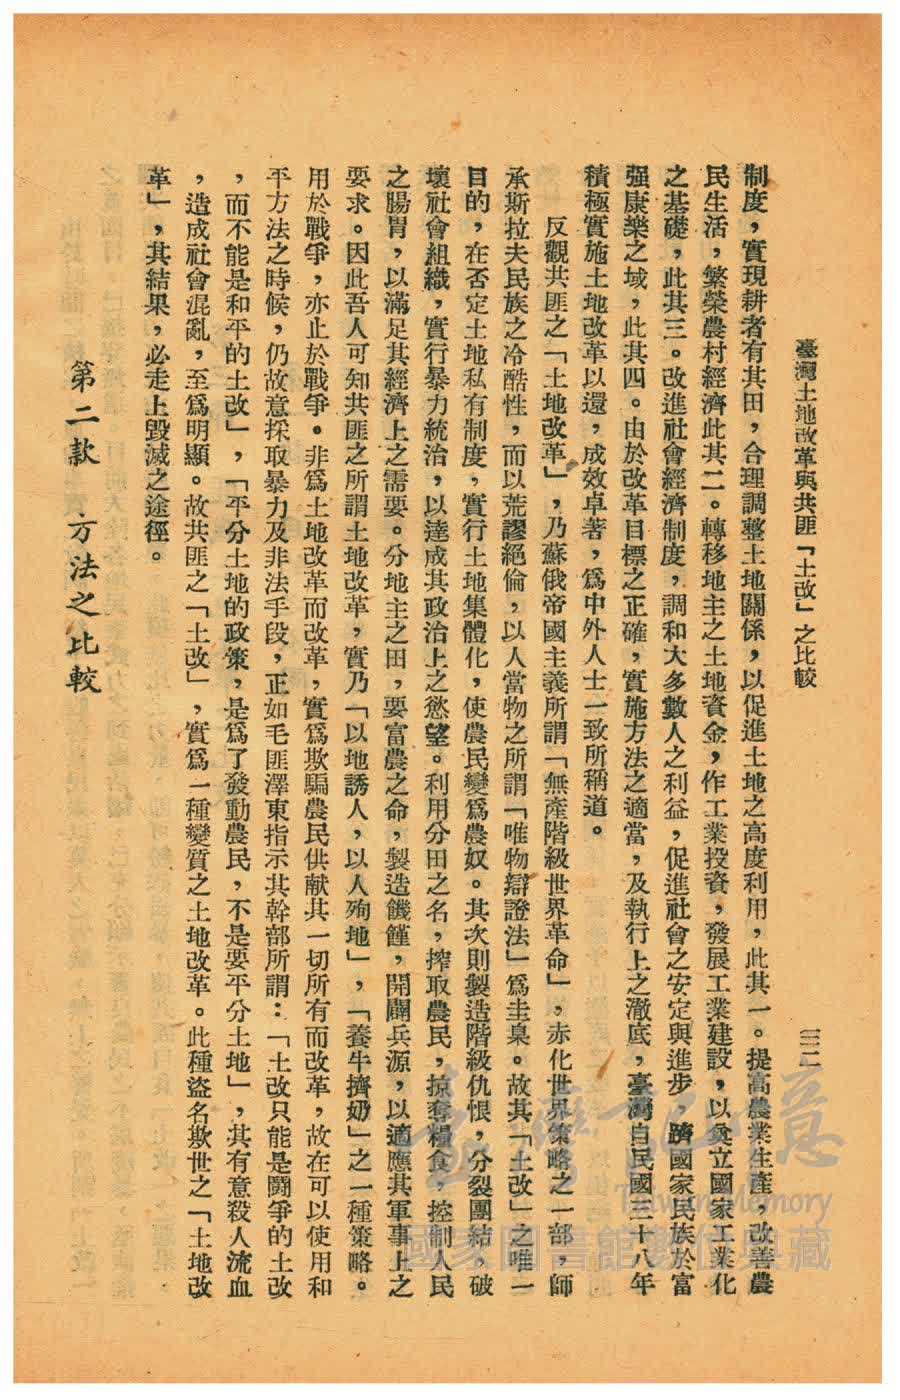 臺灣土地改革與共匪「土改」之比較
三二
制度，實現耕者有其田，合理調整土地關係，以促進土地之高度利用，此其一。提高農業生產，改善農
民生活，繁榮農村經濟此其二。轉移地主之土地資金，作工業投資，發展工業建設，以奠立國家工業化
之基礎，此其三。改進社會經濟制度，調和大多數人之利益，促進社會之安定與進步，躋國家民族於富
强康樂之域，此其四。由於改革目標之正確，實施方法之適當，及執行上之澈底，臺灣自民國三十八年
積極實施土地改革以還，成效卓著，爲中外人士一致所稱道。
反觀共匪之「土地改革」，乃蘇俄帝國主義所謂「無產階級世界革命」，赤化世界策略之一部，師
承斯拉夫民族之冷酷性，而以荒謬絕倫，以人當物之所謂「唯物辯證法」爲圭臬。故其「土改」之唯一
目的，在否定土地私有制度，實行土地集體化，使農民變爲農奴。其次則製造階級仇恨，分裂團結，破
壞社會組織，實行暴力統治，以達成其政治上之慾望。利用分田之名，搾取農民，掠奪糧食，控制人民
之腸胃，以滿足其經濟上之需要。分地主之田，要富農之命，製造饑饉，開闢兵源，以適應其軍事上之
要求。因此吾人可知共匪之所謂土地改革，實乃「以地誘人，以人殉地」，「養牛擠奶」之一種策略。
用於戰爭，亦止於戰爭。非爲土地改革而改革，實爲欺騙農民供献其一切所有而改革，故在可以使用和
平方法之時候，仍故意採取暴力及非法手段，正如毛匪澤東指示其幹部所謂：「土改只能是鬪爭的土改
，而不能是和平的土改」，「平分土地的政策，是爲了發動農民，不是要平分土地」，其有意殺人流血
，造成社會混亂，至爲明顯。故共匪之「土改」，實爲一種變質之土地改革。此種盜名欺世之「土地改
革」，其結果，必走上毀滅之途徑。
第二款 方法之比較
臺灣記憶
Taiwan Memory
國家圖書館數位典藏